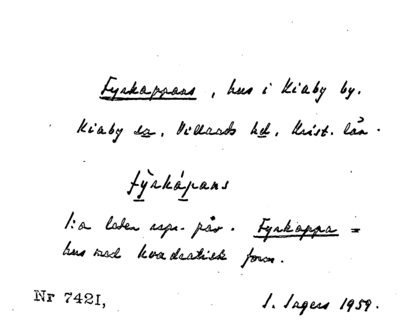 Fyrkappans, hus i Kiaby by.
Kiaby sn, Villands hd, Krist. län.
fy̱rká̱pans
1:a leden repr. pår. Fyrkappa =
hus med kvadratisk form.
Nr 7421, I. Ingers 1959.